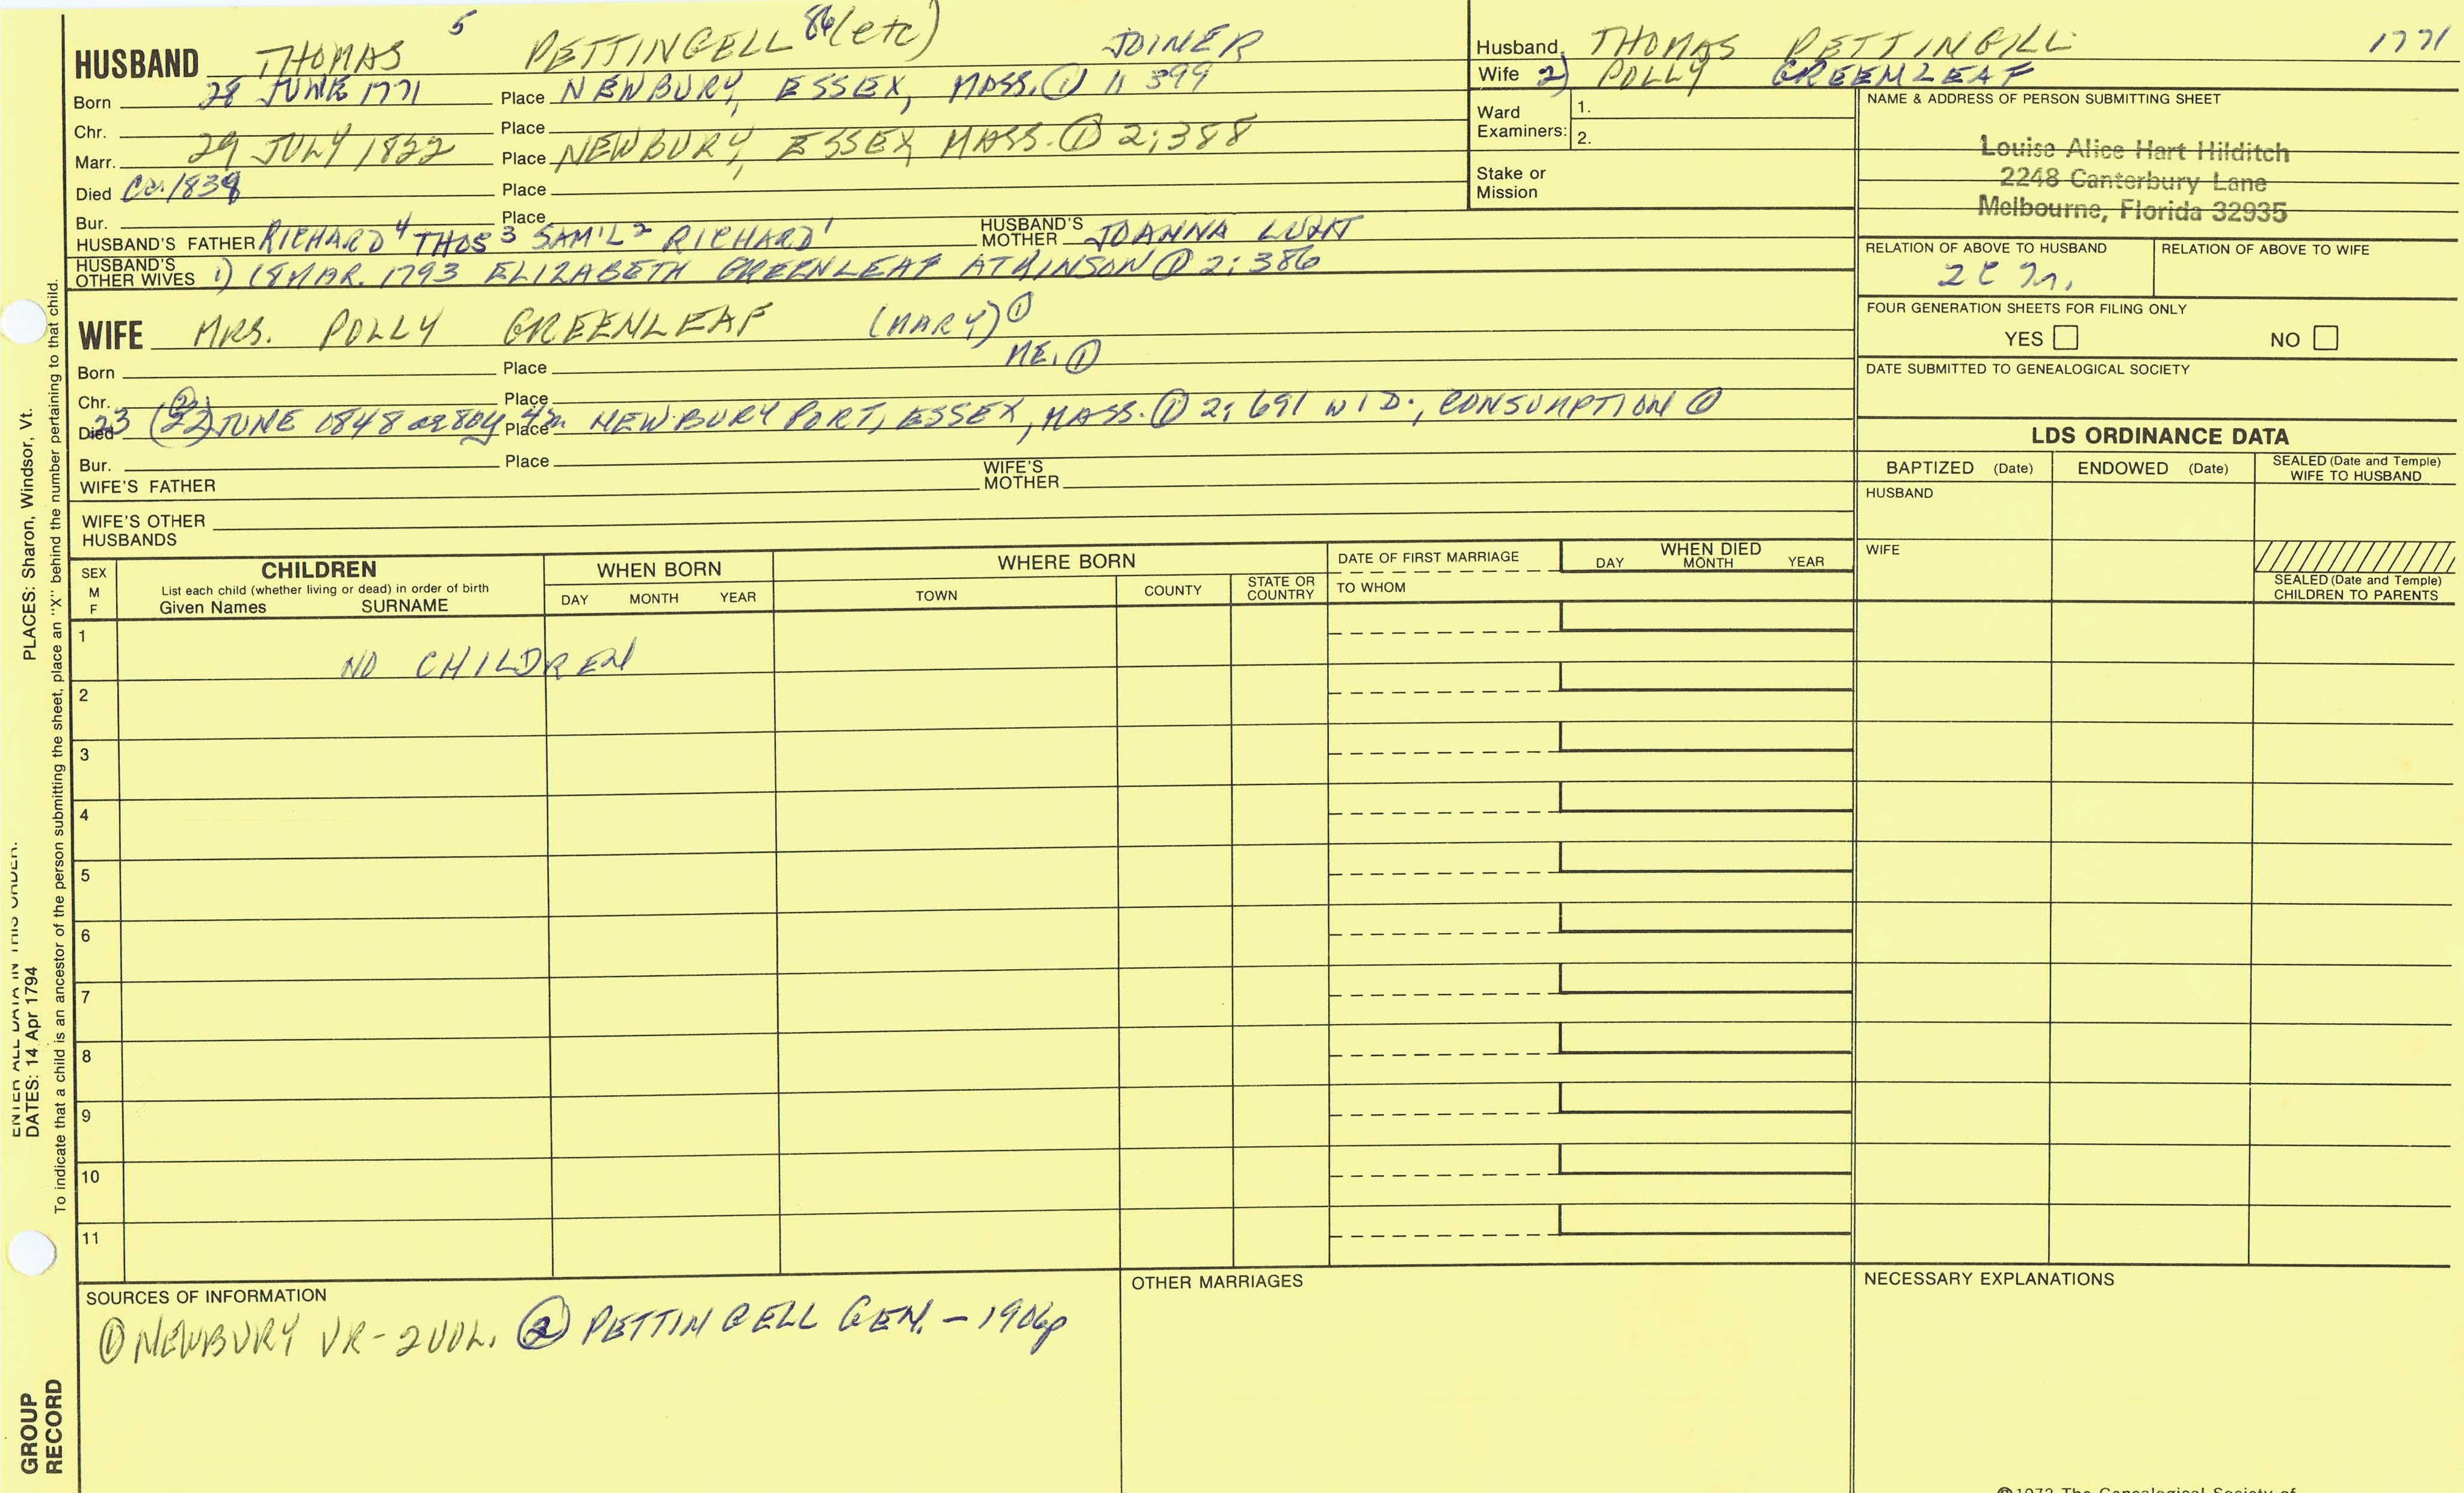 HUSBAND THOMAS 5 PETTINGELL 86 (etc) JOINER
Born 28 JUNE 1771 Place NEWBURY, ESSEX, MASS. ① 1: 399
Chr. Place
Marr. 29 JULY 1822 Place NEWBURY, ESSEX MASS. ① 2:388
Died Ca. 1838 Place
Bur. Place
HUSBAND'S FATHER RICHARD 4 THOS 3 SAM'L 2 RICHARD 1 HUSBAND'S MOTHER JOANNA LUNT
HUSBAND'S OTHER WIVES 1) 18 MAR. 1793 ELIZABETH GREENLEAF ATKINSON ① 2:386
WIFE MRS. POLLY GREENLEAF (MARY) ①
Born Place ME. ①
Chr. Place
Died 23 (22) ② JUNE 1848 ae 80y 4m Place NEWBURYPORT, ESSEX, MASS. ① 2:691 WID., CONSUMPTION ①
Bur. Place
WIFE'S FATHER WIFE'S MOTHER
WIFE'S OTHER HUSBANDS
Husband THOMAS PETTINGILL 1771
Wife 2) POLLY GREENLEAF
Ward Examiners: 1.
2.
Stake or Mission
NAME & ADDRESS OF PERSON SUBMITTING SHEET
Louise Alice Hart Hilditch
2248 Canterbury Lane
Melbourne, Florida 32935
RELATION OF ABOVE TO HUSBAND RELATION OF ABOVE TO WIFE
FOUR GENERATION SHEETS FOR FILING ONLY
YES NO
DATE SUBMITTED TO GENEALOGICAL SOCIETY
LDS ORDINANCE DATA
BAPTIZED (Date) ENDOWED (Date) SEALED (Date and Temple) WIFE TO HUSBAND
HUSBAND
WIFE
SEALED (Date and Temple) CHILDREN TO PARENTS
SEX M F
CHILDREN
List each child (whether living or dead) in order of birth
Given Names SURNAME
WHEN BORN
DAY MONTH YEAR
WHERE BORN
TOWN COUNTY STATE OR COUNTRY
DATE OF FIRST MARRIAGE
TO WHOM
WHEN DIED
DAY MONTH YEAR
1 NO CHILDREN
2
3
4
5
6
7
8
9
10
11
SOURCES OF INFORMATION
① NEWBURY VR - 2 VOL. ② PETTINGELL GEN. - 1906
OTHER MARRIAGES
NECESSARY EXPLANATIONS
PLACES: Sharon, Windsor, Vt.
ENTER ALL DATA IN THIS ORDER.
DATES: 14 Apr 1794
To indicate that a child is an ancestor of the person submitting the sheet, place an "X" behind the number pertaining to that child.
GROUP RECORD
©1972 The Genealogical Society of